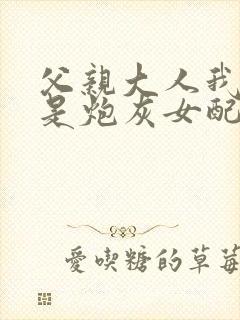 父親大人我
是炮灰女配
愛喫糖的草莓